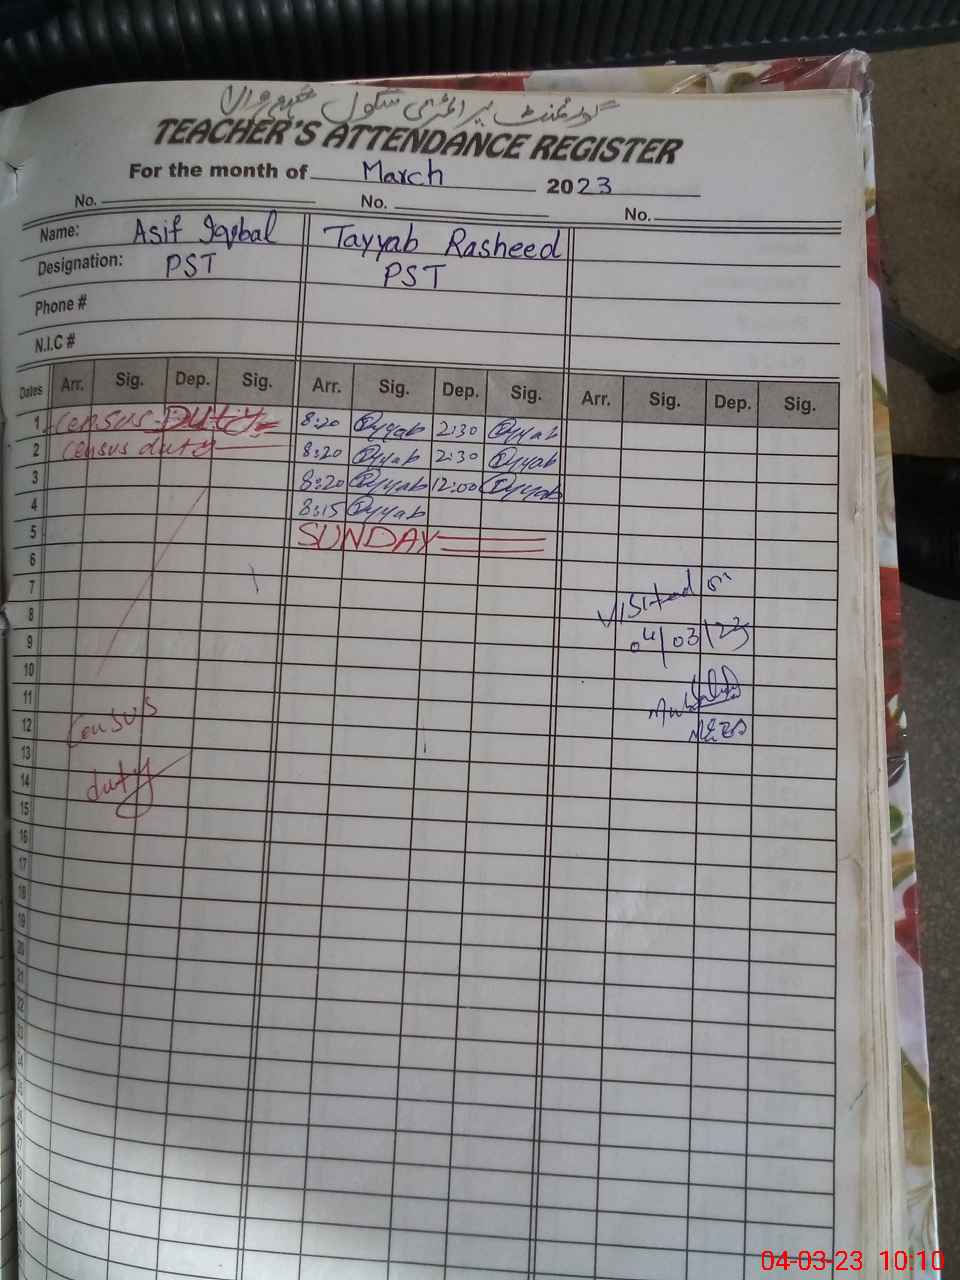 گورنمنٹ پرائمری سکول
TEACHER'S ATTENDANCE REGISTER
For the month of March 2023
No. No. No.
Name: Asif Iqbal Tayyab Rasheed
Designation: PST PST
Phone #
N.I.C #
Dates Arr. Sig. Dep. Sig. Arr. Sig. Dep. Sig. Arr. Sig. Dep. Sig.
1 Census Duty 8:20 Tayyab 2:30 Tayyab
2 Census duty 8:20 Tayyab 2:30 Tayyab
3 8:20 Tayyab 12:00 Tayyab
4 8:15 Tayyab
5 SUNDAY
6
7
8 Visited on
9 04/03/23
10
11
12 Census
13
14 duty
15
16
17
18
19
20
21
22
23
24
25
26
27
04-03-23 10:10